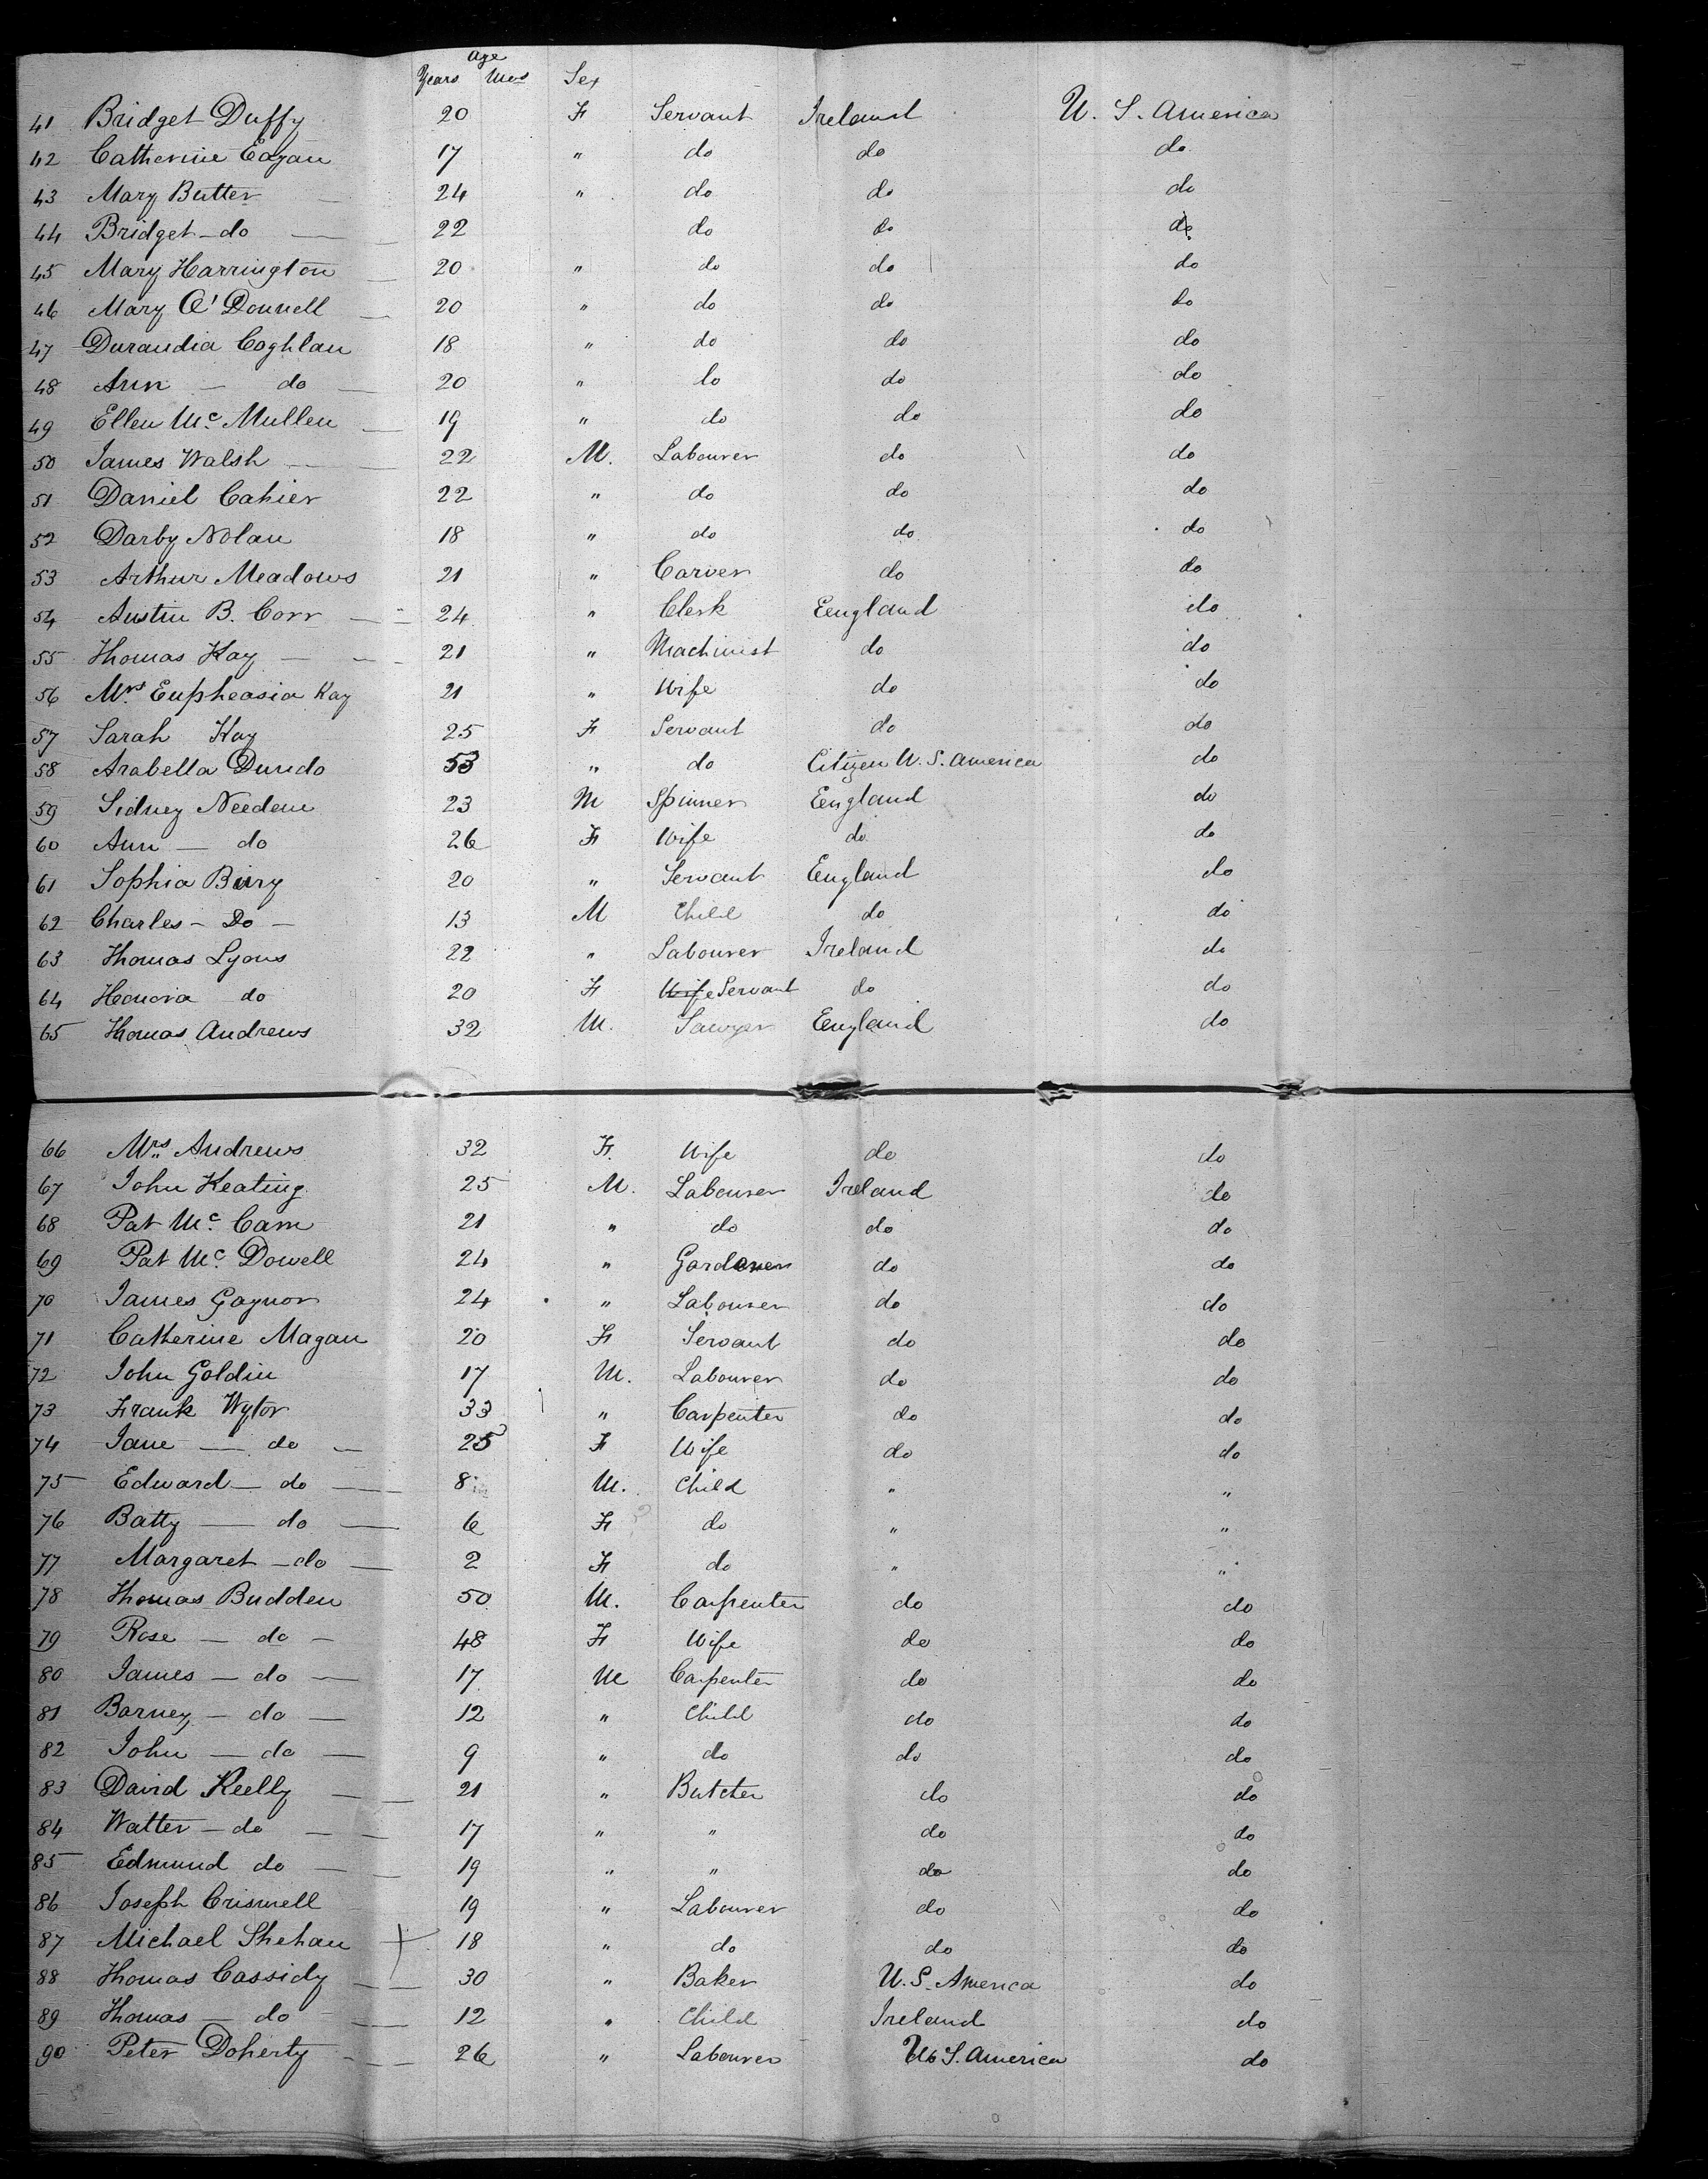 Age
Years Mos Sex
41 Bridget Duffy 20 F Servant Ireland U. S. America
42 Catherine Eagan 17 " do do do
43 Mary Butter — 24 " do do do
44 Bridget — do — 22 do do do
45 Mary Harrington — 20 " do do do
46 Mary O'Donnell — 20 " do do do
47 Durandia Coghlan 18 " do do do
48 Ann — do — 20 " do do do
49 Ellen Mc Mullen — 19 " do do do
50 James Walsh — 22 M. Labourer do do
51 Daniel Cahier 22 " do do do
52 Darby Nolan 18 " do do do
53 Arthur Meadows 21 " Carver do do
54 Austin B. Corr — 24 " Clerk Eengland do
55 Thomas Kay — 21 " Machinist do do
56 Mrs Eupheasia Kay 21 " Wife do do
57 Sarah Kay 25 F Servant do do
58 Arabella Dundo 53 " do Citizen U. S. America do
59 Sidney Needem 23 M Spinner Eengland do
60 Ann — do 26 F Wife do do
61 Sophia Burg 20 " Servant Eengland do
62 Charles — Do — 13 M Child do do
63 Thomas Lyons 22 " Labourer Ireland do
64 Honora do 20 F Wife Servant do do
65 Thomas Andrews 32 M. Sawyer Eengland do
66 Mrs Andrews 32 F. Wife do do
67 John Keating 25 M. Labourer Ireland do
68 Pat Mc Cam 21 " do do do
69 Pat Mc Dowell 24 " Gardener do do
70 James Gaynor 24 " Labourer do do
71 Catherine Magan 20 F Servant do do
72 John Goldin 17 M. Labourer do do
73 Frank Wylor 33 " Carpenter do do
74 Jane — do — 25 F Wife do do
75 Edward — do — 8 M. Child " "
76 Batty — do — 6 F do " "
77 Margaret — do — 2 F do " "
78 Thomas Budden 50 M. Carpenter do do
79 Rose — do — 48 F Wife do do
80 James — do — 17 M Carpenter do do
81 Barney — do — 12 " Child do do
82 John — do — 9 " do do do
83 David Keelly — 21 " Butcher do do
84 Walter — do — 17 " " do do
85 Edmund do — 19 " " do do
86 Joseph Criswell 19 " Labourer do do
87 Michael Shehan + 18 " do do do
88 Thomas Cassidy — 30 " Baker U. S. America do
89 Thomas — do — 12 " Child Ireland do
90 Peter Doherty — 26 " Labourer U. S. America do